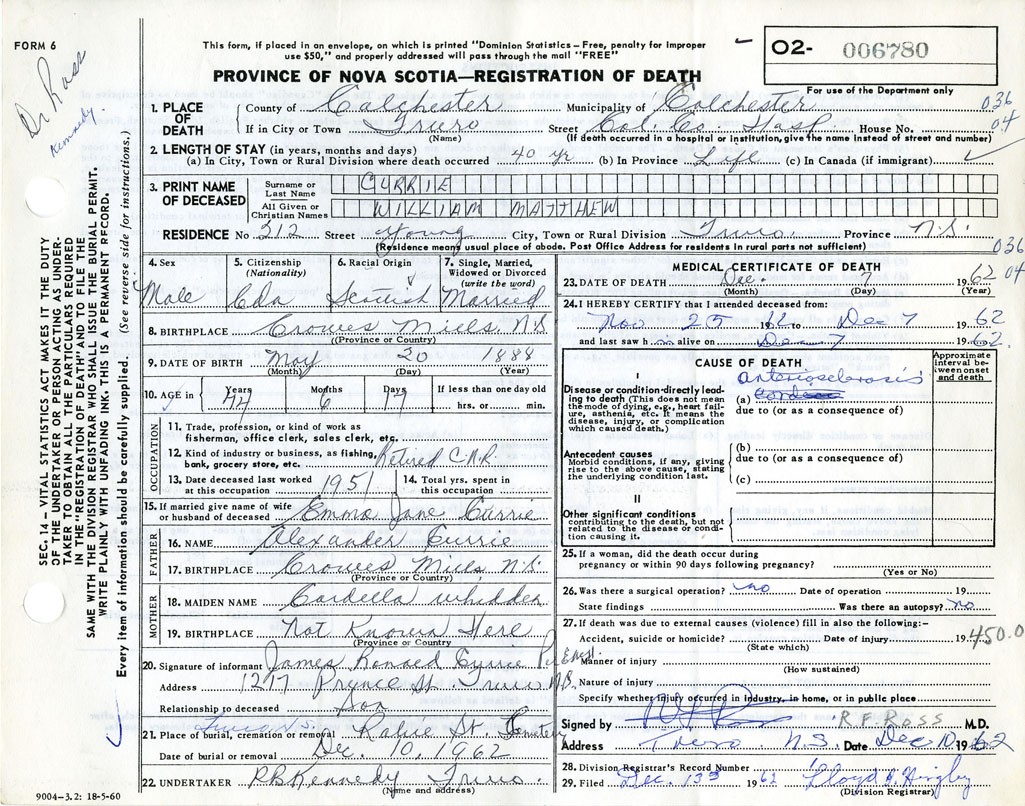 FORM 6
This form, if placed in an envelope, on which is printed "Dominion Statistics – Free, penalty for improper
use $50," and properly addressed will pass through the mail "FREE"
O2- 006780
For use of the Department only
PROVINCE OF NOVA SCOTIA—REGISTRATION OF DEATH
Dr Ross
Kennedy.
SEC. 14 – VITAL STATISTICS ACT MAKES IT THE DUTY
OF THE UNDERTAKER OR PERSON ACTING AS UNDER-
TAKER TO OBTAIN ALL THE PARTICULARS REQUIRED
IN THE "REGISTRATION OF DEATH" AND TO FILE THE
SAME WITH THE DIVISION REGISTRAR WHO SHALL ISSUE THE BURIAL PERMIT.
WRITE PLAINLY WITH UNFADING INK. THIS IS A PERMANENT RECORD.
Every item of information should be carefully supplied. (See reverse side for instructions.)
1. PLACE OF DEATH
County of Colchester Municipality of Colchester 036
If in City or Town Truro Street Col. Co. Hosp. House No. 04
(Name) (If death occurred in a hospital or institution, give the name instead of street and number)
2. LENGTH OF STAY (in years, months and days)
(a) In City, Town or Rural Division where death occurred 40 yr (b) In Province Life (c) In Canada (if immigrant)
3. PRINT NAME OF DECEASED
Surname or Last Name CURRIE
All Given or Christian Names WILLIAM MATTHEW
RESIDENCE No 312 Street Young City, Town or Rural Division Truro. Province N.S.
(Residence means usual place of abode. Post Office Address for residents in rural parts not sufficient) 036
04
4. Sex 5. Citizenship (Nationality) 6. Racial Origin 7. Single, Married, Widowed or Divorced (write the word)
Male Cda Scottish Married
8. BIRTHPLACE Crowes Mills, N.S.
(Province or Country)
9. DATE OF BIRTH May 20 1888
(Month) (Day) (Year)
10. AGE in Years Months 6 Days 17 If less than one day old
hrs. or min.
OCCUPATION
11. Trade, profession, or kind of work as
fisherman, office clerk, sales clerk, etc.
12. Kind of industry or business, as fishing,
bank, grocery store, etc. Retired C.N.R.
13. Date deceased last worked at this occupation 1951 14. Total yrs. spent in this occupation
15. If married give name of wife
or husband of deceased Emma Jane Currie
FATHER
16. NAME Alexander Currie
17. BIRTHPLACE Crowes Mills N.S.
(Province or Country)
MOTHER
18. MAIDEN NAME Cordella Whidden
19. BIRTHPLACE Not Known Here
(Province or Country)
20. Signature of informant James Ronald Currie
Address Prynce St Truro N.S.
Relationship to deceased Son
21. Place of burial, cremation or removal Truro N.S. Robie St. Cemetery
Date of burial or removal Dec. 10, 1962
22. UNDERTAKER R B Kennedy Truro.
(Name and address)
9004–3.2: 18-5-60
MEDICAL CERTIFICATE OF DEATH
23. DATE OF DEATH Dec. 7 1962
(Month) (Day) (Year)
24. I HEREBY CERTIFY that I attended deceased from:
Nov 25 1962 to Dec 7 1962
and last saw him alive on Dec 7 1962.
CAUSE OF DEATH
Approximate interval between onset and death
I
Disease or condition directly lead-
ing to death (This does not mean
the mode of dying, e.g., heart fail-
ure, asthenia, etc. It means the
disease, injury, or complication
which caused death.)
arteriosclerosis
(a)
due to (or as a consequence of)
Antecedent causes
Morbid conditions, if any, giving
rise to the above cause, stating
the underlying condition last.
(b)
due to (or as a consequence of)
(c)
II
Other significant conditions
contributing to the death, but not
related to the disease or condi-
tion causing it.
25. If a woman, did the death occur during
pregnancy or within 90 days following pregnancy?
(Yes or No)
26. Was there a surgical operation? no Date of operation 19
State findings Was there an autopsy? no
27. If death was due to external causes (violence) fill in also the following:–
Accident, suicide or homicide? Date of injury 19 450.0
(State which)
Manner of injury
(How sustained)
Nature of injury
Specify whether injury occurred in industry, in home, or in public place
Signed by R.F. ROSS M.D.
Address Truro N.S. Date Dec 10 1962
28. Division Registrar's Record Number
29. Filed Dec. 13th 1962 Lloyd
(Division Registrar)